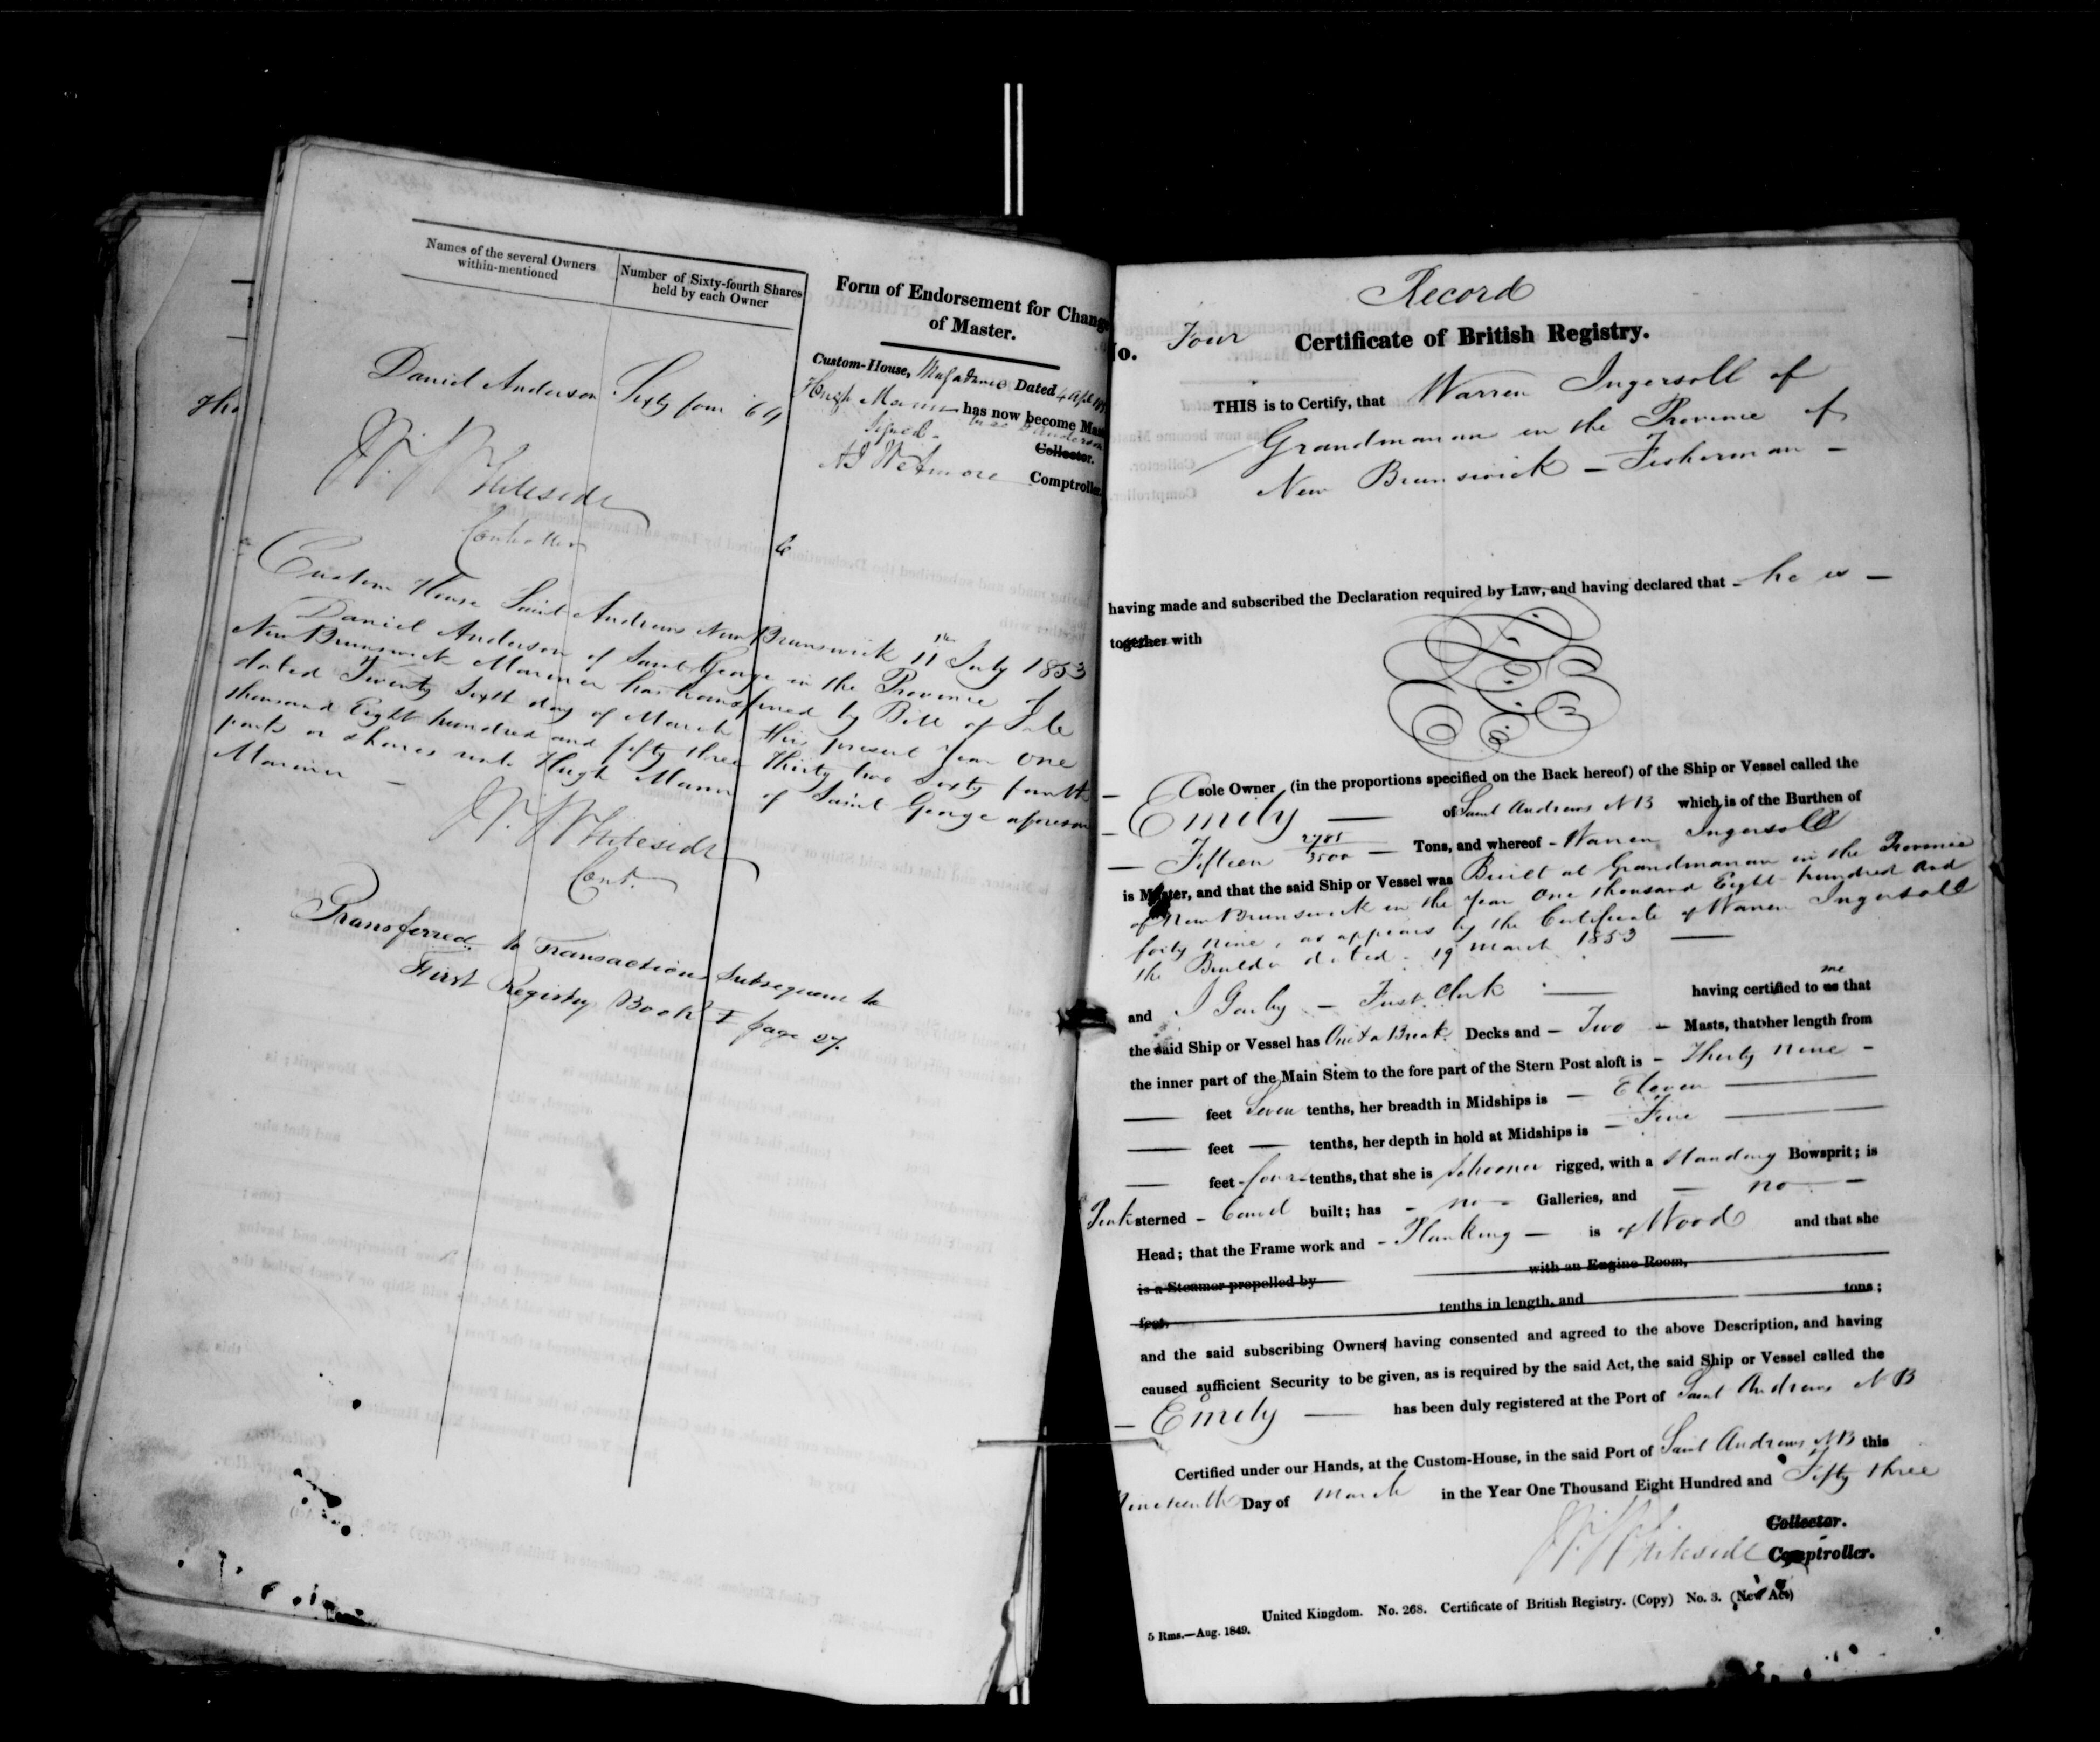 Names of the several Owners
within-mentioned
Number of Sixty-fourth Shares
held by each Owner
Daniel Anderson Sixty four 64
W. Whiteside
Controller
Form of Endorsement for Change
of Master.
Custom-House, Magadavic Dated 4 Apl
Hugh Mann has now become Mas
Signed
Collector.
Wetmore Comptroller.
Custom House Saint Andrews New Brunswick 11th July 1853
Daniel Anderson of Saint George in the Province of
New Brunswick Mariner has transferred by Bill of Sale
dated Twenty Sixth day of March this present Year One
thousand Eight hundred and fifty three Thirty two sixty fourth
parts or shares unto Hugh Mann of Saint George aforesaid
Mariner —
W. Whiteside
Cont.
Transferred to Transactions Subsequent to
First Registry Book I page 27.
Record
No. Four Certificate of British Registry.
THIS is to Certify, that Warren Ingersoll of
Grandmanan in the Province of
New Brunswick — Fisherman —
having made and subscribed the Declaration required by Law, and having declared that - he is —
together with
sole Owner (in the proportions specified on the Back hereof) of the Ship or Vessel called the
— Emily — of Saint Andrews NB which is of the Burthen of
— Fifteen 2785/3500 — Tons, and whereof - Warren Ingersoll
is Master, and that the said Ship or Vessel was Built at Grandmanan in the Province
of New Brunswick in the Year One thousand Eight hundred and
forty nine, as appears by the Certificate of Warren Ingersoll
the Builder dated - 19 March 1853 —
and — First Clerk — having certified to us me that
the said Ship or Vessel has One & a Break Decks and — Two — Masts, that her length from
the inner part of the Main Stem to the fore part of the Stern Post aloft is — Thirty nine —
— feet Seven tenths, her breadth in Midships is — Eleven —
— feet — tenths, her depth in hold at Midships is — Five —
— feet - four - tenths, that she is Schooner rigged, with a Standing Bowsprit; is
Pink sterned - Carvel built; has - no - Galleries, and — no —
Head; that the Frame work and - Planking — is of Wood and that she
is a Steamer propelled by with an Engine Room,
feet, tenths in length, and tons;
and the said subscribing Owners having consented and agreed to the above Description, and having
caused sufficient Security to be given, as is required by the said Act, the said Ship or Vessel called the
— Emily — has been duly registered at the Port of Saint Andrews NB
Certified under our Hands, at the Custom-House, in the said Port of Saint Andrews NB this
Nineteenth Day of March in the Year One Thousand Eight Hundred and Fifty three
Collector.
W. Whiteside Comptroller.
United Kingdom. No. 268. Certificate of British Registry. (Copy) No. 3. (New Act)
5 Rms.—Aug. 1849.